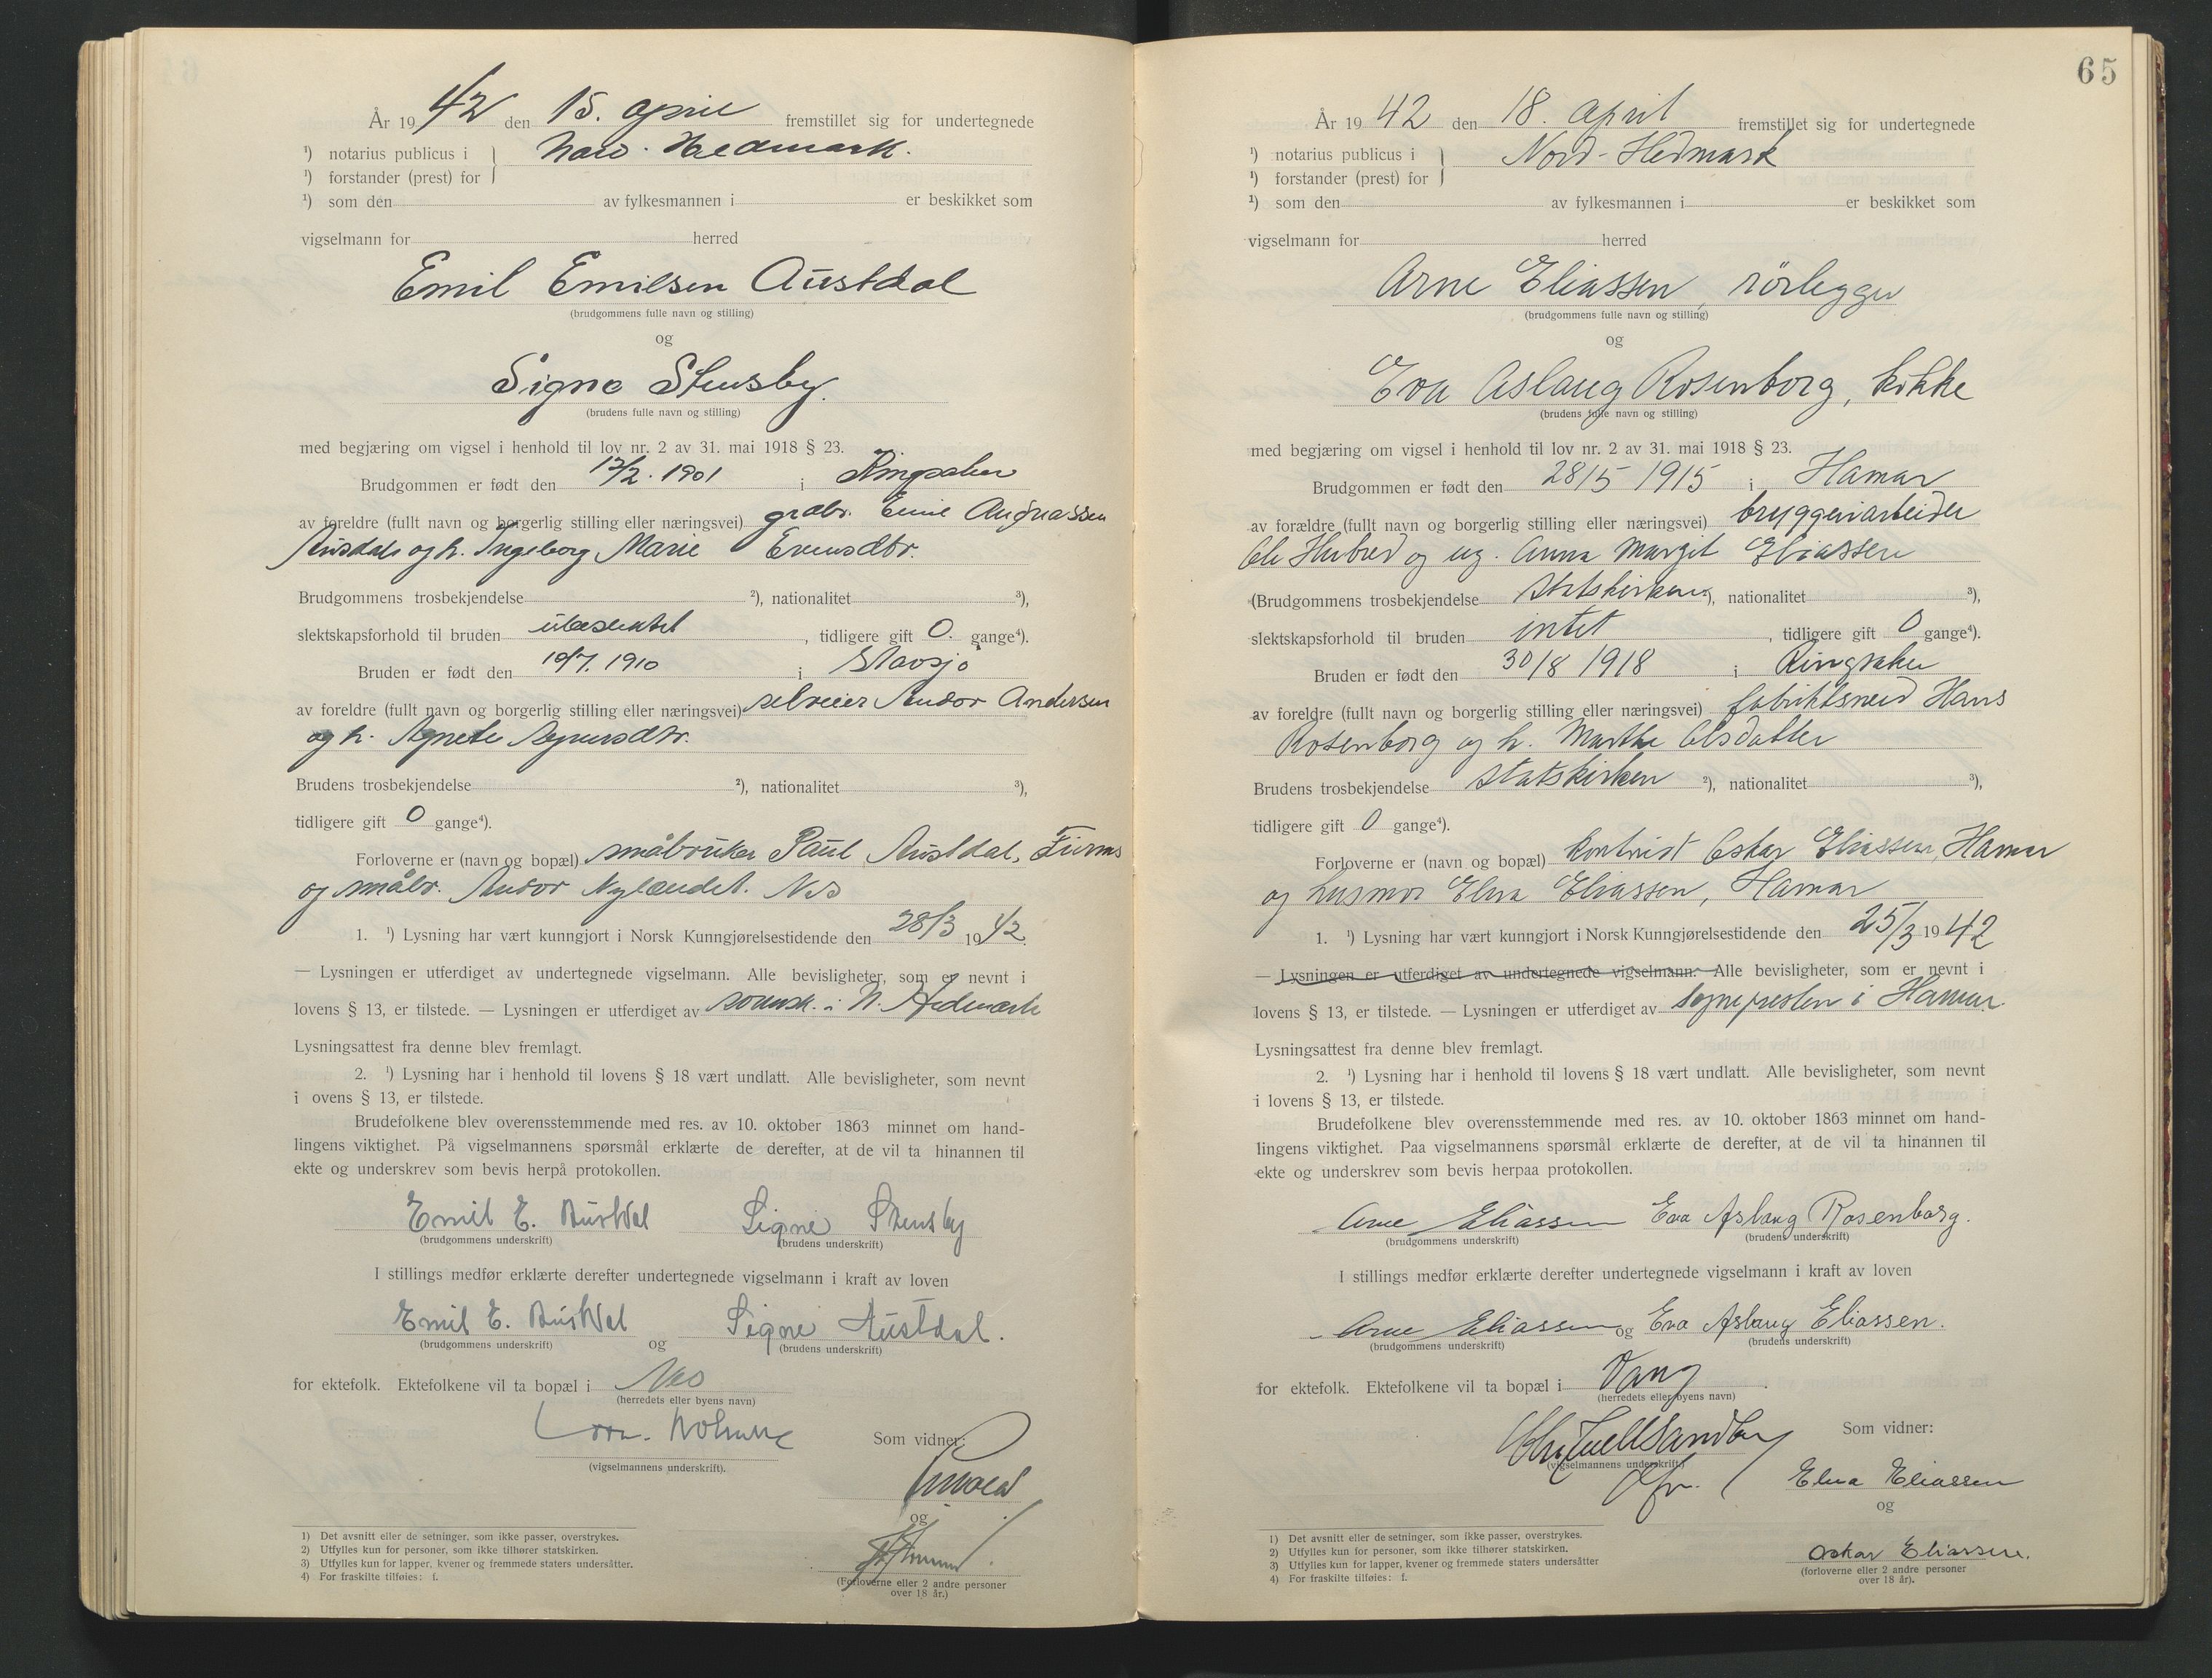 År 1942 den 15. april fremstillet sig for undertegnede
¹) notarius publicus i } Nord-Hedmark.
¹) forstander (prest) for
¹) som den av fylkesmannen i er beskikket som
vigselmann for herred
Emil Emilsen Austdal
(brudgommens fulle navn og stilling)
og
Signe Stensby.
(brudens fulle navn og stilling)
med begjæring om vigsel i henhold til lov nr. 2 av 31. mai 1918 § 23.
Brudgommen er født den /2. 1901 i Ringsaker
av foreldre (fullt navn og borgerlig stilling eller næringsvei) Emil Andreassen
og h. Ingeborg Marie Evensdtr.
Brudgommens trosbekjendelse ²), nationalitet ³),
slektskapsforhold til bruden ubeslektet, tidligere gift 0. gange⁴).
Bruden er født den 10/7. 1910 i Stavsjø
av foreldre (fullt navn og borgerlig stilling eller næringsvei) selveier Andor Andersen
og h. Agnete
Brudens trosbekjendelse ²), nationalitet ³),
tidligere gift 0 gange⁴).
Forloverne er (navn og bopæl) småbruker Paul Austdal, Furnes
og småbr. Andor Nylændet. Nes
1. ¹) Lysning har vært kunngjort i Norsk Kunngjørelsestidende den 28/3 1942.
— Lysningen er utferdiget av undertegnede vigselmann. Alle bevisligheter, som er nevnt i
lovens § 13, er tilstede. — Lysningen er utferdiget av sorensk. i N. Hedmark
Lysningsattest fra denne blev fremlagt.
2. ¹) Lysning har i henhold til lovens § 18 vært undlatt. Alle bevisligheter, som nevnt
i ovens § 13, er tilstede.
Brudefolkene blev overensstemmende med res. av 10. oktober 1863 minnet om hand-
lingens viktighet. På vigselmannens spørsmål erklærte de derefter, at de vil ta hinannen til
ekte og underskrev som bevis herpå protokollen.
Emil E. Austdal Signe Stensby
(brudgommens underskrift) (brudens underskrift)
I stillings medfør erklærte derefter undertegnede vigselmann i kraft av loven
Emil E. Austdal og Signe Austdal.
(brudgommens underskrift) (brudens underskrift)
for ektefolk. Ektefolkene vil ta bopæl i Nes
(herredets eller byens navn)
Som vidner:
(vigselmannens underskrift).
og
(Forloverne eller 2 andre personer
over 18 år.)
1) Det avsnitt eller de setninger, som ikke passer, overstrykes.
2) Utfylles kun for personer, som ikke tilhører statskirken.
3) Utfylles kun for lapper, kvener og fremmede staters undersåtter.
4) For fraskilte tilføies: f.
65
År 1942 den 18. april fremstillet sig for undertegnede
¹) notarius publicus i } Nord-Hedmark
¹) forstander (prest) for
¹) som den av fylkesmannen i er beskikket som
vigselmann for herred
Arne Eliassen, rørlegger
(brudgommens fulle navn og stilling)
og
Eva Aslaug Rosenborg, kokke
(brudens fulle navn og stilling)
med begjæring om vigsel i henhold til lov nr. 2 av 31. mai 1918 § 23.
Brudgommen er født den 28/5 1915 i Hamar
av forældre (fullt navn og borgerlig stilling eller næringsvei) bryggeriarbeider
Ole og ug. Anna Margit Eliassen
(Brudgommens trosbekjendelse statskirken ²), nationalitet ³),
slektskapsforhold til bruden intet, tidligere gift 0 gange⁴).
Bruden er født den 30/8 1918 i Ringsaker
av foreldre (fullt navn og borgerlig stilling eller næringsvei) fabrikksmed Hans
Rosenborg og h. Marthe Olsdatter
Brudens trosbekjendelse statskirken ²), nationalitet ³),
tidligere gift 0 gange⁴).
Forloverne er (navn og bopæl) kontorist Oskar Eliassen, Hamar
og husmor Elna Eliassen, Hamar
1. ¹) Lysning har vært kunngjort i Norsk Kunngjørelsestidende den 25/3 1942
— Lysningen er utferdiget av undertegnede vigselmann. Alle bevisligheter, som er nevnt i
lovens § 13, er tilstede. — Lysningen er utferdiget av sognepresten i Hamar.
Lysningsattest fra denne blev fremlagt.
2. ¹) Lysning har i henhold til lovens § 18 vært undlatt. Alle bevisligheter, som nevnt
i lovens § 13, er tilstede.
Brudefolkene blev overensstemmende med res. av 10. oktober 1863 minnet om hand-
lingens viktighet. Paa vigselmannens spørsmål erklærte de derefter, at de vil ta hinannen til
ekte og underskrev som bevis herpaa protokollen.
Arne Eliassen Eva Aslaug Rosenborg.
(brudgommens underskrift) (brudens underskrift)
I stillings medfør erklærte derefter undertegnede vigselmann i kraft av loven
Arne Eliassen og Eva Aslaug Eliassen.
(brudgommens underskrift) (brudens underskrift)
for ektefolk. Ektefolkene vil ta bopæl i Vang.
(herredets eller byens navn)
Som vidner:
(vigselmannens underskrift)
Elna Eliassen
og
Oskar Eliassen.
(forloverne eller 2 andre personer
over 18 år).
1) Det avsnitt eller de setninger, som ikke passer, overstrykes.
2) Utfylles kun for personer, som ikke tilhører statskirken.
3) Utfylles kun for lapper, kvener og fremmede staters undersåtter
4) For fraskilte tilføies: f.